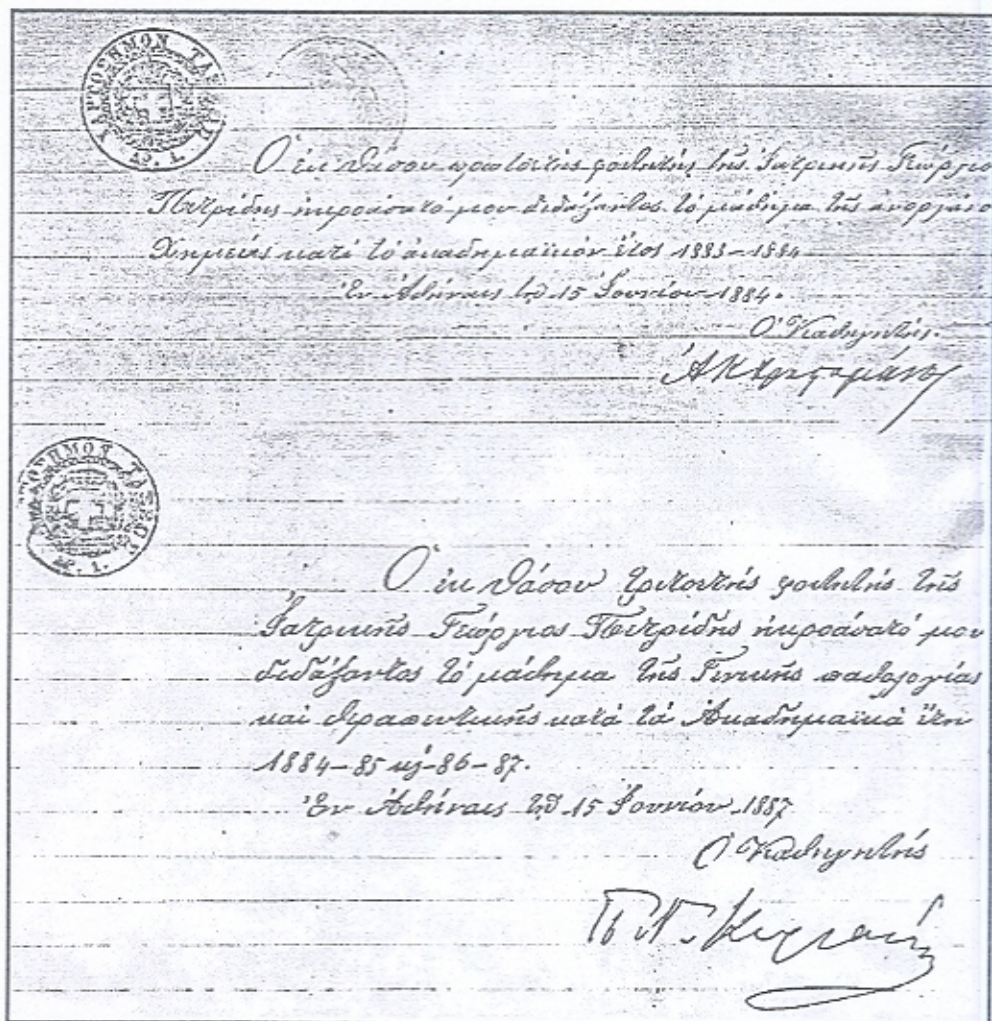 ΧΑΡΤΟΣΗΜΟΝ
ΔΡ. 1.
Ὁ ἐκ Θάσου πρωτοετὴς φοιτητὴς τῆς Ἰατρικῆς Γεώργιο
Πετρίδης ἠκροάσατό μου διδάξαντος τὸ μάθημα τῆς ἀνοργάνο
Χημείας κατὰ τὸ ἀκαδημαϊκὸν ἔτος 1883-1884
Ἐν Ἀθήναις τῇ 15 Ἰουνίου 1884.
Ὁ Καθηγητής.
ΔΡ. 1.
Ὁ ἐκ Θάσου τριτοετὴς φοιτητὴς τῆς
Ἰατρικῆς Γεώργιος Πετρίδης ἠκροάσατό μου
διδάξαντος τὸ μάθημα τῆς Γενικῆς παθολογίας
καὶ θεραπευτικῆς κατὰ τὰ Ἀκαδημαϊκὰ ἔτη
1884-85 κὶ-86-87.
Ἐν Ἀθήναις τῇ 15 Ἰουνίου 1887
Ὁ Καθηγητής